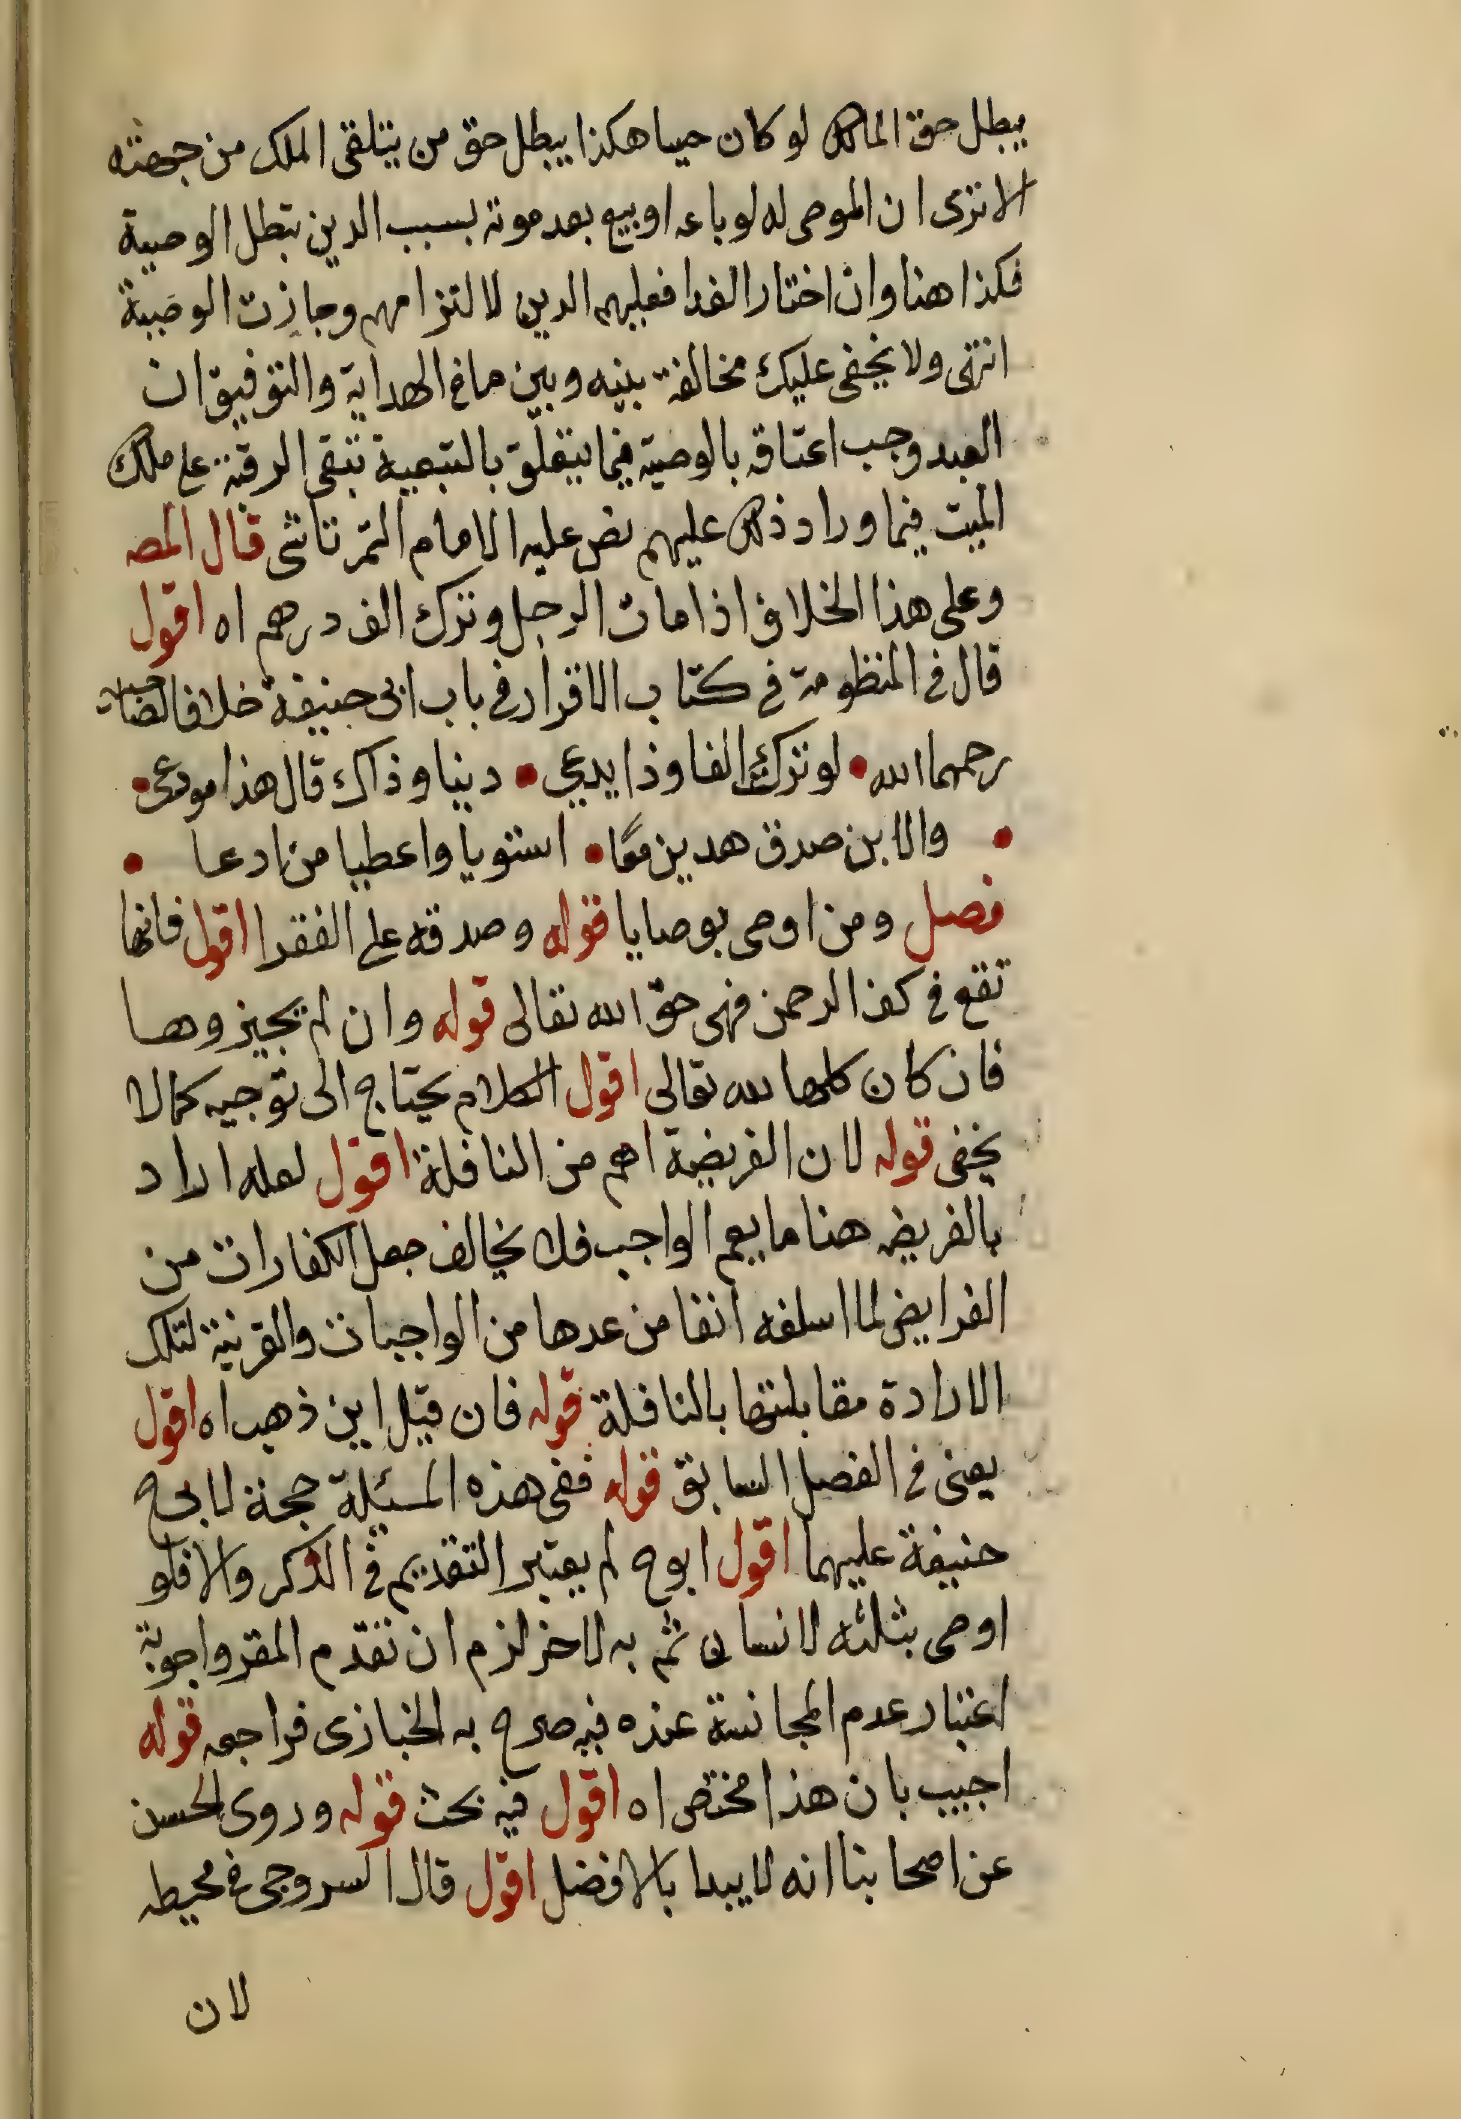 يبطل حق المالك لو كان حيا هكذا يبطل حق من يتلقى الملك من جهته
الا ترى ان الموصى له لو باعه او بيع بعد موته بسبب الدين تبطل الوصية
فكذا هنا وان اختار الفدا فعليهم الدين لا لتزامهم وجازت الوصية
انتهى ولا يخفى عليك مخالفة بينه وبين ما في الهداية والتوفيق ان
العبد وجب اعتاقه بالوصية فيما يتعلق بالتبعية تبقى الرقبة على ملك
الميت فيما ورا ذلك عليهم نص عليه الامام التمرتاشى قال المصـ
وعلى هذا الخلاف اذا مات الرجل وترك الف درهم اه اقول
قال فى المنظومة فى كتاب الاقرار فى باب ابى حنيفة خلافا لصاحبيه
رحمهما الله • لو ترك الفا وذا يدعى • دينا وذاك قال هذا مودعى •
• والابن صدق هدين معًا • استويا واعطيا من ادعا •
فصل ومن اوصى بوصايا قوله وصدقه على الفقرا اقول فانها
تقع فى كف الرحمن فهى حق الله تعالى قوله وان لم يجيزوها
فان كان كلها لله تعالى اقول الكلام يحتاج الى توجيه كما لا
يخفى قوله لان الفريضة اهم من النافلة اقول لعله اراد
بالفريضه هنا ما يعم الواجب فلا يخالف جعل الكفارات من
الفرايض لما اسلفه انفا من عدها من الواجبات والقرينة لتلك
الارادة مقابلتها بالنافلة قوله فان قيل اين ذهب اه اقول
يعنى فى الفصل السابق قوله ففى هذه المسئلة حجة لابى ح
حنيفة عليهما اقول ابو ح لم يعتبر التقديم فى الذكر والا فلو
اوصى بثلثه لانسان ثم به لاخر لزم ان تقدم المقر واجوبة
اعتبار عدم المجانسة عنده فيه صرح به الخبازى فراجعه قوله
اجيب بان هذا مختص اه اقول فيه بحث قوله وروى الحسن
عن اصحابنا انه لا يبدا بالافضل اقول قال السروجى فى محيطه
لان